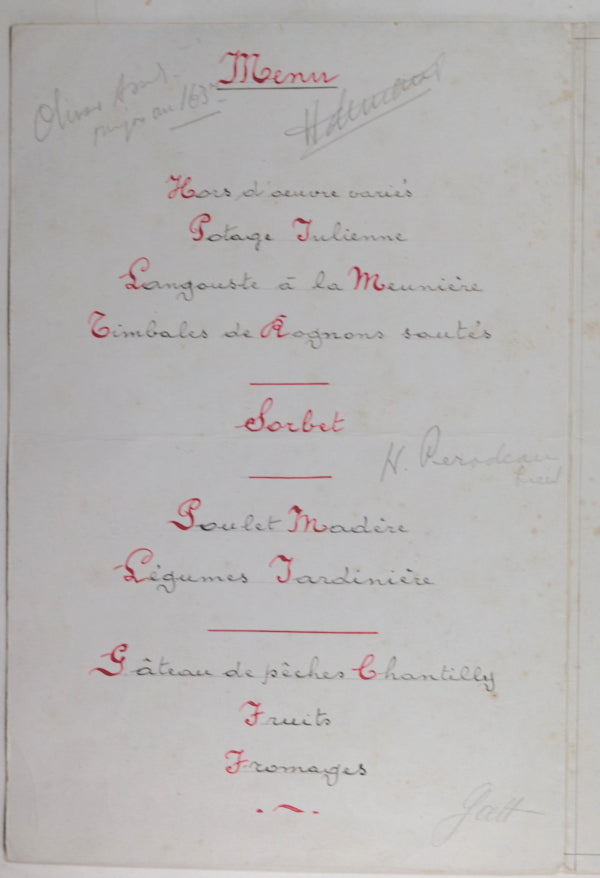 Menu
au 163
Hors d'oeuvre variés
Potage Julienne
Langouste à la Meunière
Timbales de Rognons sautés
Sorbet
H. Perodeau
Poulet Madère
Légumes Jardinière
Gâteau de pêches Chantilly
Fruits
Fromages